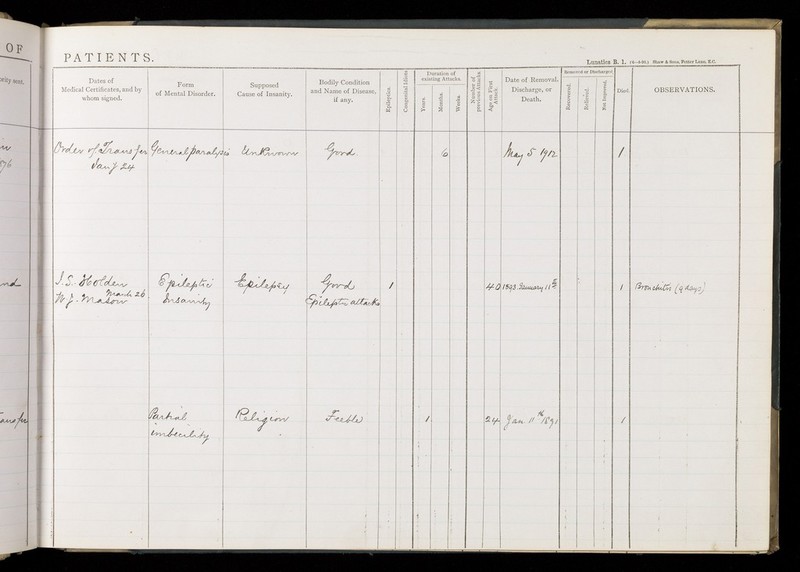 OF
PATIENTS.
Lunatics B. 1. Shaw & Sons, Fetter Lane, E.C.
Dates of
Medical Certificates, and by
whom signed.
Form
of Mental Disorder.
Supposed
Cause of Insanity.
Bodily Condition
and Name of Disease,
if any.
Epileptics.
Congenital Idiots
Duration of
existing Attacks.
Years
Months.
Weeks
Number of
previous Attacks.
Age on First
Attack.
Date of Removal,
Discharge, or
Death.
Removed or Discharged
Recovered.
Relieved.
Not Improved.
Died.
OBSERVATIONS.
Order of Transfer General paralysis Unknown Good 6 May 5 1912 1
Jany 24
J. S. Holden Epileptic Epilepsy Good 1 40 1898 January 11th 1 Bronchitis (9 days)
March 26
W. J. Mason Insanity Epileptic attacks
Partial Religion Feeble 1 24 Jan 11th 1891 1
imbecility